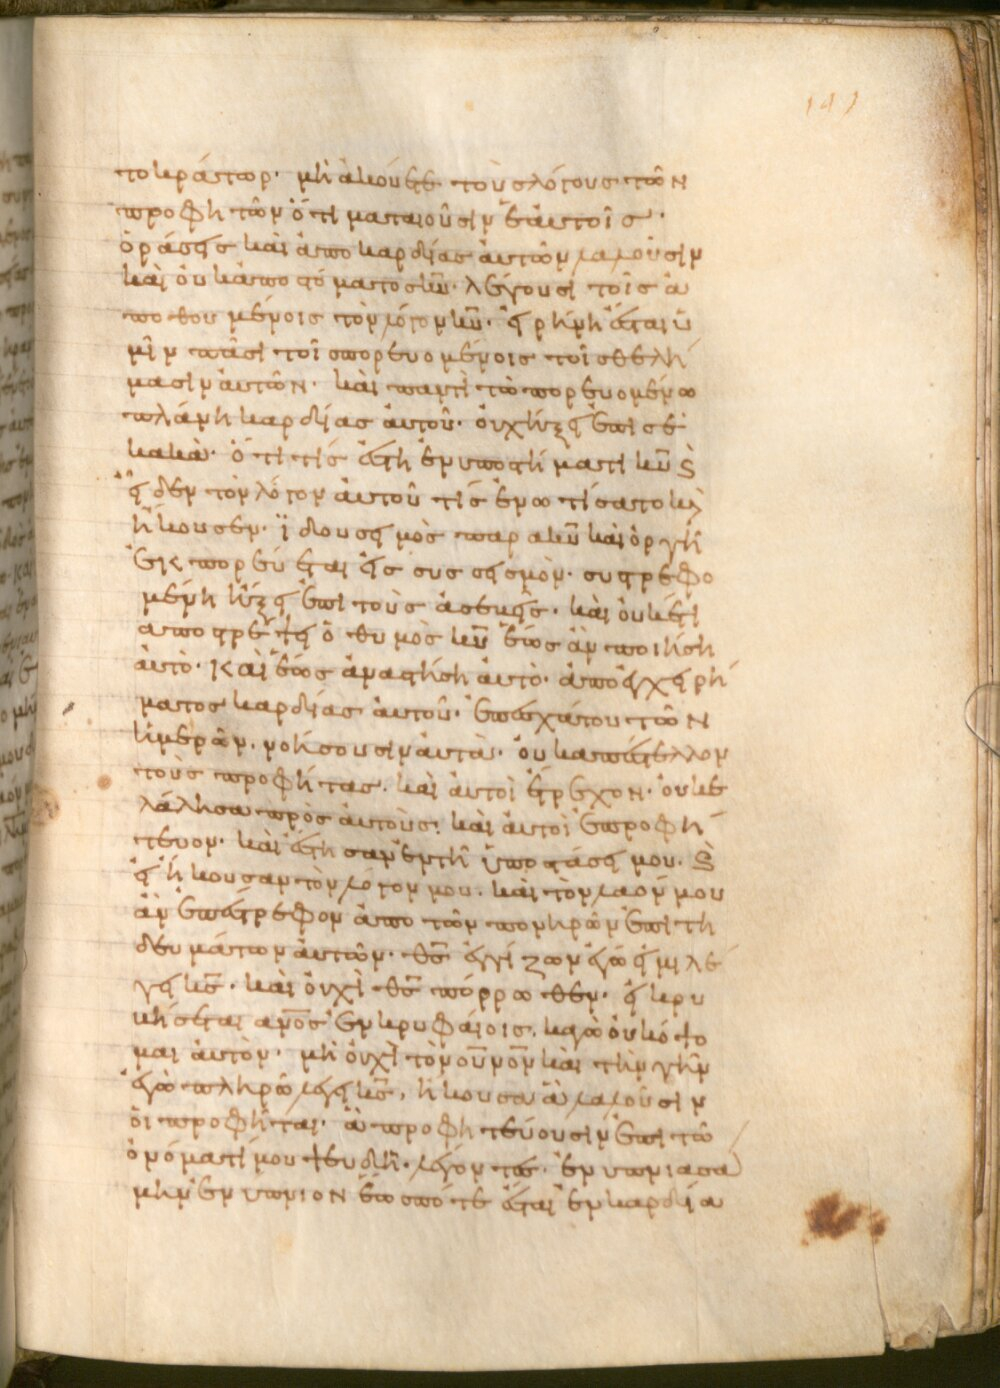 τοκράτωρ· μὴ ἀκούετε τοὺς λόγους τῶν
προφητῶν ὅτι ματαιοῦσιν ἑαυτοῖς·
ὁράσεις καὶ ἀπο καρδίας ἀυτῶν λαλοῦσιν
καὶ ὀυκ ἀπο στόματος κ̅υ̅· λέγουσι τοῖς ἀ
πωθουμένοις τὸν λόγον κ̅υ̅· εἰρήνη ἔσται ὑ
μῖν πᾶσι τοῖς πορευομένοις τοῖς θελή
μασιν ἀυτῶν· καὶ παντὶ τῶ πορευομένω
πλάνη καρδίας ἀυτοῦ· ὀυχ ἥξει ἐπὶ σὲ
κακὰ· ὅτι τίς ἔστη ἐν ὑποστήματι κ̅υ̅ ϗ
εἶδεν τὸν λόγον ἀυτοῦ τίς ἐνωτίσατο κὰ
ἤκουσεν· ϊδου σεισμὸς παρα κ̅υ̅ καὶ ὀργὴ
ἐκπορεύεται εἰς συσσεισμὸν· συστρεφο
μένη ἥξει ἐπὶ τοὺς ἀσεβεῖς· καὶ ὀυκέτι
αποστρέψει ὁ θυμὸς κ̅υ̅ ἕως ἂν ποιήση
ἀυτὸ· καὶ ἕως ἀναστήση ἀυτὸ· ἀπὸ ἐγχειρή
ματος καρδίας ἀυτοῦ· ἐπεσχάτου τῶν
ἡμερῶν· νοήσουσιν ἀυτὰ· ὀυκ απέστελλον
τοὺς προφήτας· καὶ ἀυτοὶ ἔτρεχον· ὀυκ ἐ
λάλησα πρὸς ἀυτοὺς· καὶ ἀυτοὶ ἐπροφή
τευον· καὶ εἰ ἔστησαν ἐν τῆ ὑποστάσει μου· ϗ
εἰ ἤκουσαν τὸν λόγον μου· καὶ τὸν λαόν μου
ἂν ἐπέστρεφον ἀπο τῶν πονηρῶν ἐπιτη
δευμάτων ἀυτῶν· θ̅ς̅ ἐγγίζων ἐγώ εἰμι λέ
γει κ̅ς̅· καὶ ὀυχὶ θ̅ς̅ πόρρωθεν· εἰ κρυ
βήσεται α̅ν̅ο̅ς̅ ἐν κρυφαίοις· καγὼ ὀυκ ὄψο
μαι ἀυτὸν· μὴ ὀυχὶ τὸν ο̅υ̅ν̅ο̅ν̅ καὶ τὴν γῆν
ἐγὼ πληρῶ λέγει κ̅ς̅· ἤκουσα ἃ λαλοῦσιν
ὁι προφῆται· ἃ προφητεύουσιν ἐπὶ τῶ
ὀνόματί μου ψευδῆ· λέγοντες· ἐνυπνιασα
μην ἐνύπνιον ἕως πότε ἔσται ἐν καρδία